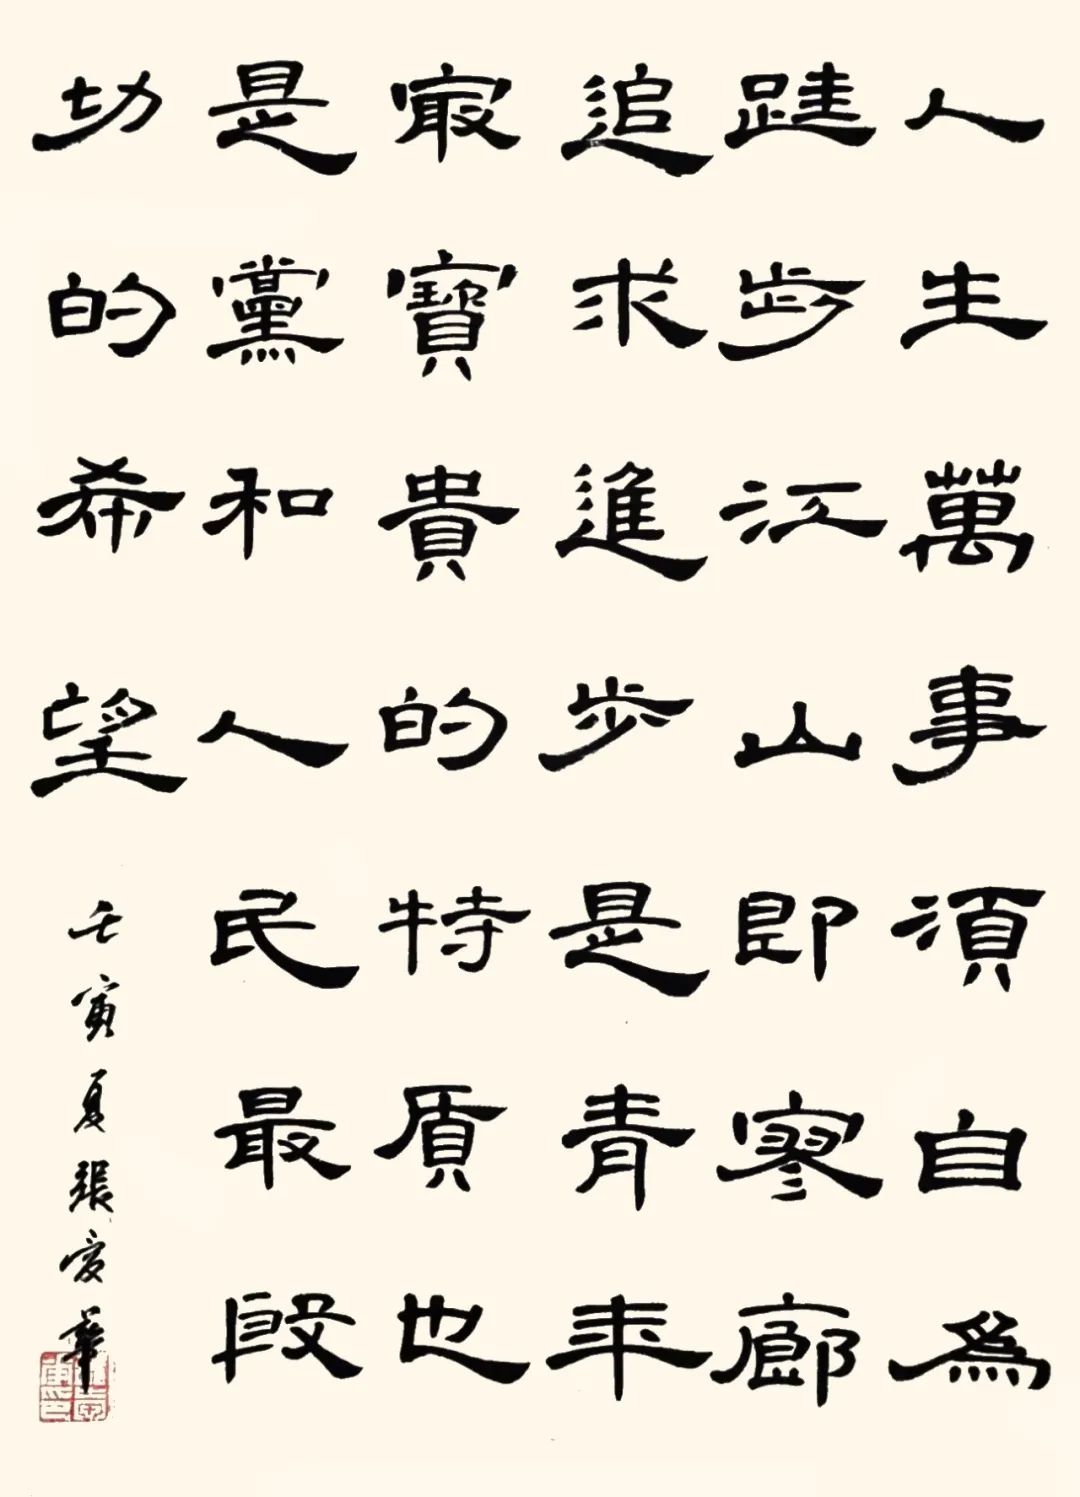 人生萬事須自為
跬步江山即寥廊
追求進步是青年
最寶貴的特質也
是黨和人民最殷
切的希望
壬寅夏張愛華